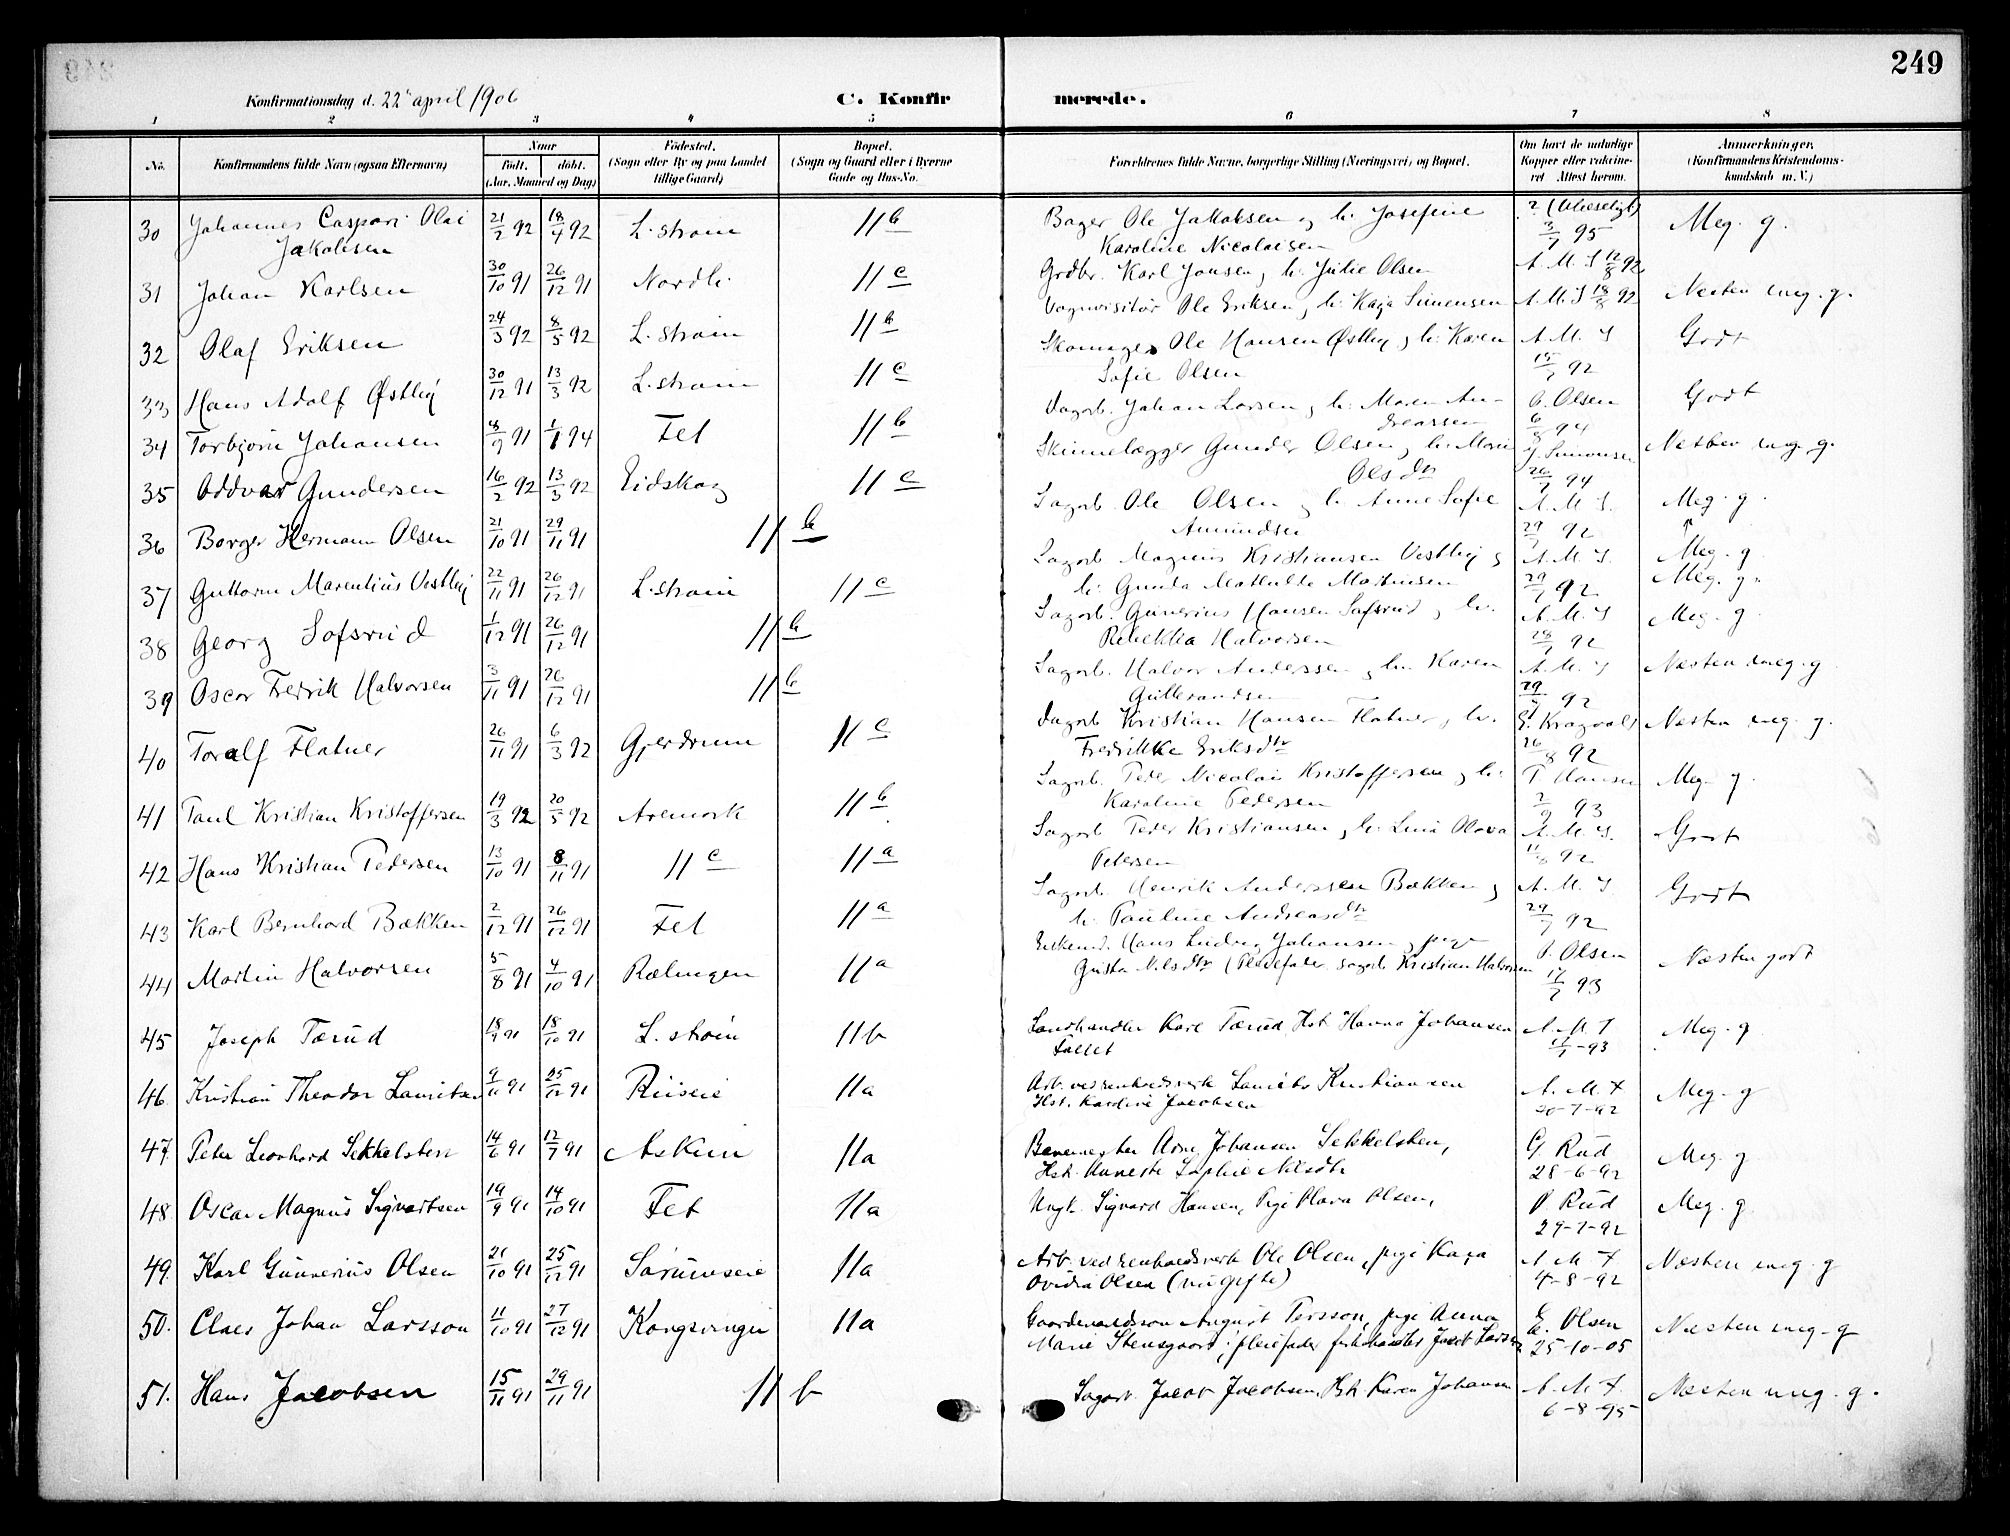 249
Konfirmationsdag d. 22 april 1906
C. Konfirmerede.
1 2 3 4 5 6 7 8
No. Konfirmandens fulde Navn (ogsaa Efternavn) Naar født. døbt. (Aar, Maaned og Dag) Fødested. (Sogn eller By og paa Landet tillige Gaard) Bopæl. (Sogn og Gaard eller i Byerne Gade og Hus-No. Forældrenes fulde Navne, borgerlige Stilling (Næringsvei) og Bopæl. Om havt de naturlige Kopper eller vaccineret Attest herom. Anmærkninger. (Konfirmandens Kristendomskundskab m. V.)
30 Johannes Caspari Olai Jakobsen 21/2 92 18/4 92 L.strøm 11 b Bager Ole Jakobsen og h. Josefine Karoline Nicolaisen 3/7 95 Meg. g.
31 Johan Karlsen 30/10 91 26/12 91 Nordli 11 c Grdbr. Karl Jonsen, h. Julie Olsen A. M. S 12/8 92 Næsten meg. g.
32 Olaf Eriksen 24/3 92 8/5 92 L.strøm 11 b Vognvisitør Ole Eriksen, h. Kaja Simensen A. M. S 18/8 92 Godt
33 Hans Adolf Østby 30/12 91 13/3 92 L.strøm 11 c Skomager Ole Hansen Østby og h. Karen Sofie Olsen A. M. S 15/7 92 Godt
34 Torbjørn Johansen 8/9 91 1/1 94 Fet 11 b Dagarb. Johan Larsen, h. Maren Andreassen O. Olsen 6/8 94 Næsten meg. g.
35 Oddvar Gundersen 16/2 92 13/3 92 Eidskog 11 c Skinnelægger Gunder Olsen, h. Marie Olsdtr J. Simonsen 26/7 94 Meg. g.
36 Borger Hermann Olsen 21/10 91 29/11 91 11 b Sagarb. Ole Olsen og h. Anne Sofie Amundsen A. M. S. 29/7 92 Meg. g.
37 Guttorm Marentius Vestby 22/11 91 26/12 91 L.strøm 11 c Sagarb. Magnus Kristiansen Vestby og h. Gunda Mathilde Martinsen A. M. S. 29/7 92 Meg. g.
38 Georg Sofsrud 1/12 91 26/12 91 11 b Sagarb. Gunerius Hansen Sofsrud, h. Rebekka Halvorsen A. M. S 28/7 92 Meg. g.
39 Oscar Fredrik Halvorsen 3/11 91 26/12 91 11 b Sagarb. Halvor Anderssen, h. Karen Gulbrandsen A. M. S 29/7 92 Næsten meg. g
40 Toralf Flatner 26/11 91 6/3 92 Gjerdrum 11 c Dagarb. Kristian Hansen Flatner, h. Fredrikke Eriksdtr 26/8 92 Næsten meg. g.
41 Paul Kristian Kristoffersen 19/3 92 20/5 92 Aremark 11 b Sagarb. Peder Nicolai Kristoffersen og h. Karoline Pedersen P. Hansen 2/9 93 Meg. g.
42 Hans Kristian Pedersen 13/10 91 8/11 91 11 c 11 a Sagarb. Peder Kristiansen, h. Lina Olava Petersen A. M. S. 11/8 92 Godt
43 Karl Bernhard Bækken 2/12 91 26/12 91 Fet 11 a Sagarb. Henrik Anderssen Bækken og h. Pauline Andreasdtr A. M. S. 29/7 92 Godt
44 Martin Halvorsen 5/8 91 4/10 91 Rælingen 11 a Enkem. Hans Ludvig Johansen, pige Gusta Nilsdtr (Pleiefader sagarb. Kristian Halvorsen O. Olsen 17/7 93 Næsten godt
45 Joseph Tærud 18/9 91 18/10 91 L. strøm 11 b Landhandler Karl Tærud, Hst. Hanna Johansen Fallet A. M. S 17/7-93 Meg. g
46. Kristian Theodor Lauritsen 9/11 91 25/12 91 Riiseie 11a Arb. ved renholdsverk Laurits Kristiansen Hst. Karoline Jacobsen A. M. S 20-7-92 Meg. g
47. Peter Leonhard Sekkelsten 14/6 91 12/7 91 Askim 11a Banemester Arne Johansen Sekkelsten, Hst. Anneste Sophie Nilsdtr G. Rud 28-6-92 Meg. g
48. Oscar Magnus Sigvartsen 19/9 91 14/10 91 Fet 11a Ungk. Sigvard Hansen, Pige Olava Olsen, O. Rud 29-7-92 Meg. g.
49. Karl Gunnerius Olsen 21/10 91 25/12 91 Sørumseie 11a Arb. ved renholdsverk Ole Olsen, pige Kaja Ovidia Olsen (nu gifte) A. M. S 4-8-92 Næsten meg. g
50. Claes Johan Larsson 11/10 91 27/12 91 Kongsvinger 11a Gaardmandssøn August Persson, pige Anna Marie Stensgaard; pleiefader fiskehandler Jacob Larsen E. Olsen 25-10-05 Næsten meg. g
51. Hans Jacobsen 15/11 91 29/11 91 11 b Sagarb. Jacob Jacobsen, Hst. Karen Johansen A. M. S. 6-8-95 Næsten meg. g.